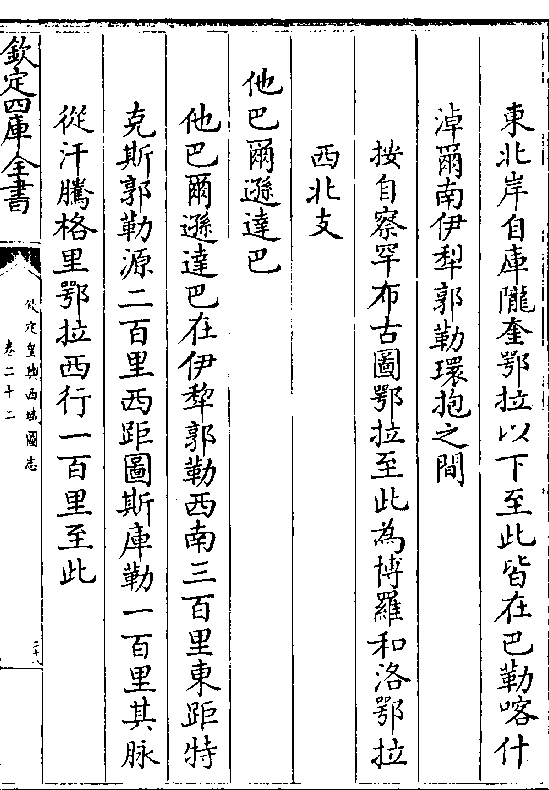 東北岸自庫隴奎鄂拉以下至此皆在巴勒喀什
淖爾南伊犁郭勒環抱之間
按自察罕布古圖鄂拉至此為博羅和洛鄂拉
西北支
他巴爾遜達巴
他巴爾遜達巴在伊犂郭勒西南三百里東距特
克斯郭勒源二百里西距圖斯庫勒一百里其脉
從汗騰格里鄂拉西行一百里至此
欽定四庫全書
欽定皇輿西域圖志
卷二十二
二十八